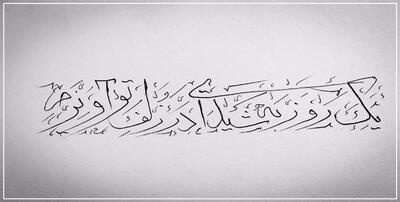 یک روز به شیدایی در زلف تو آویزم